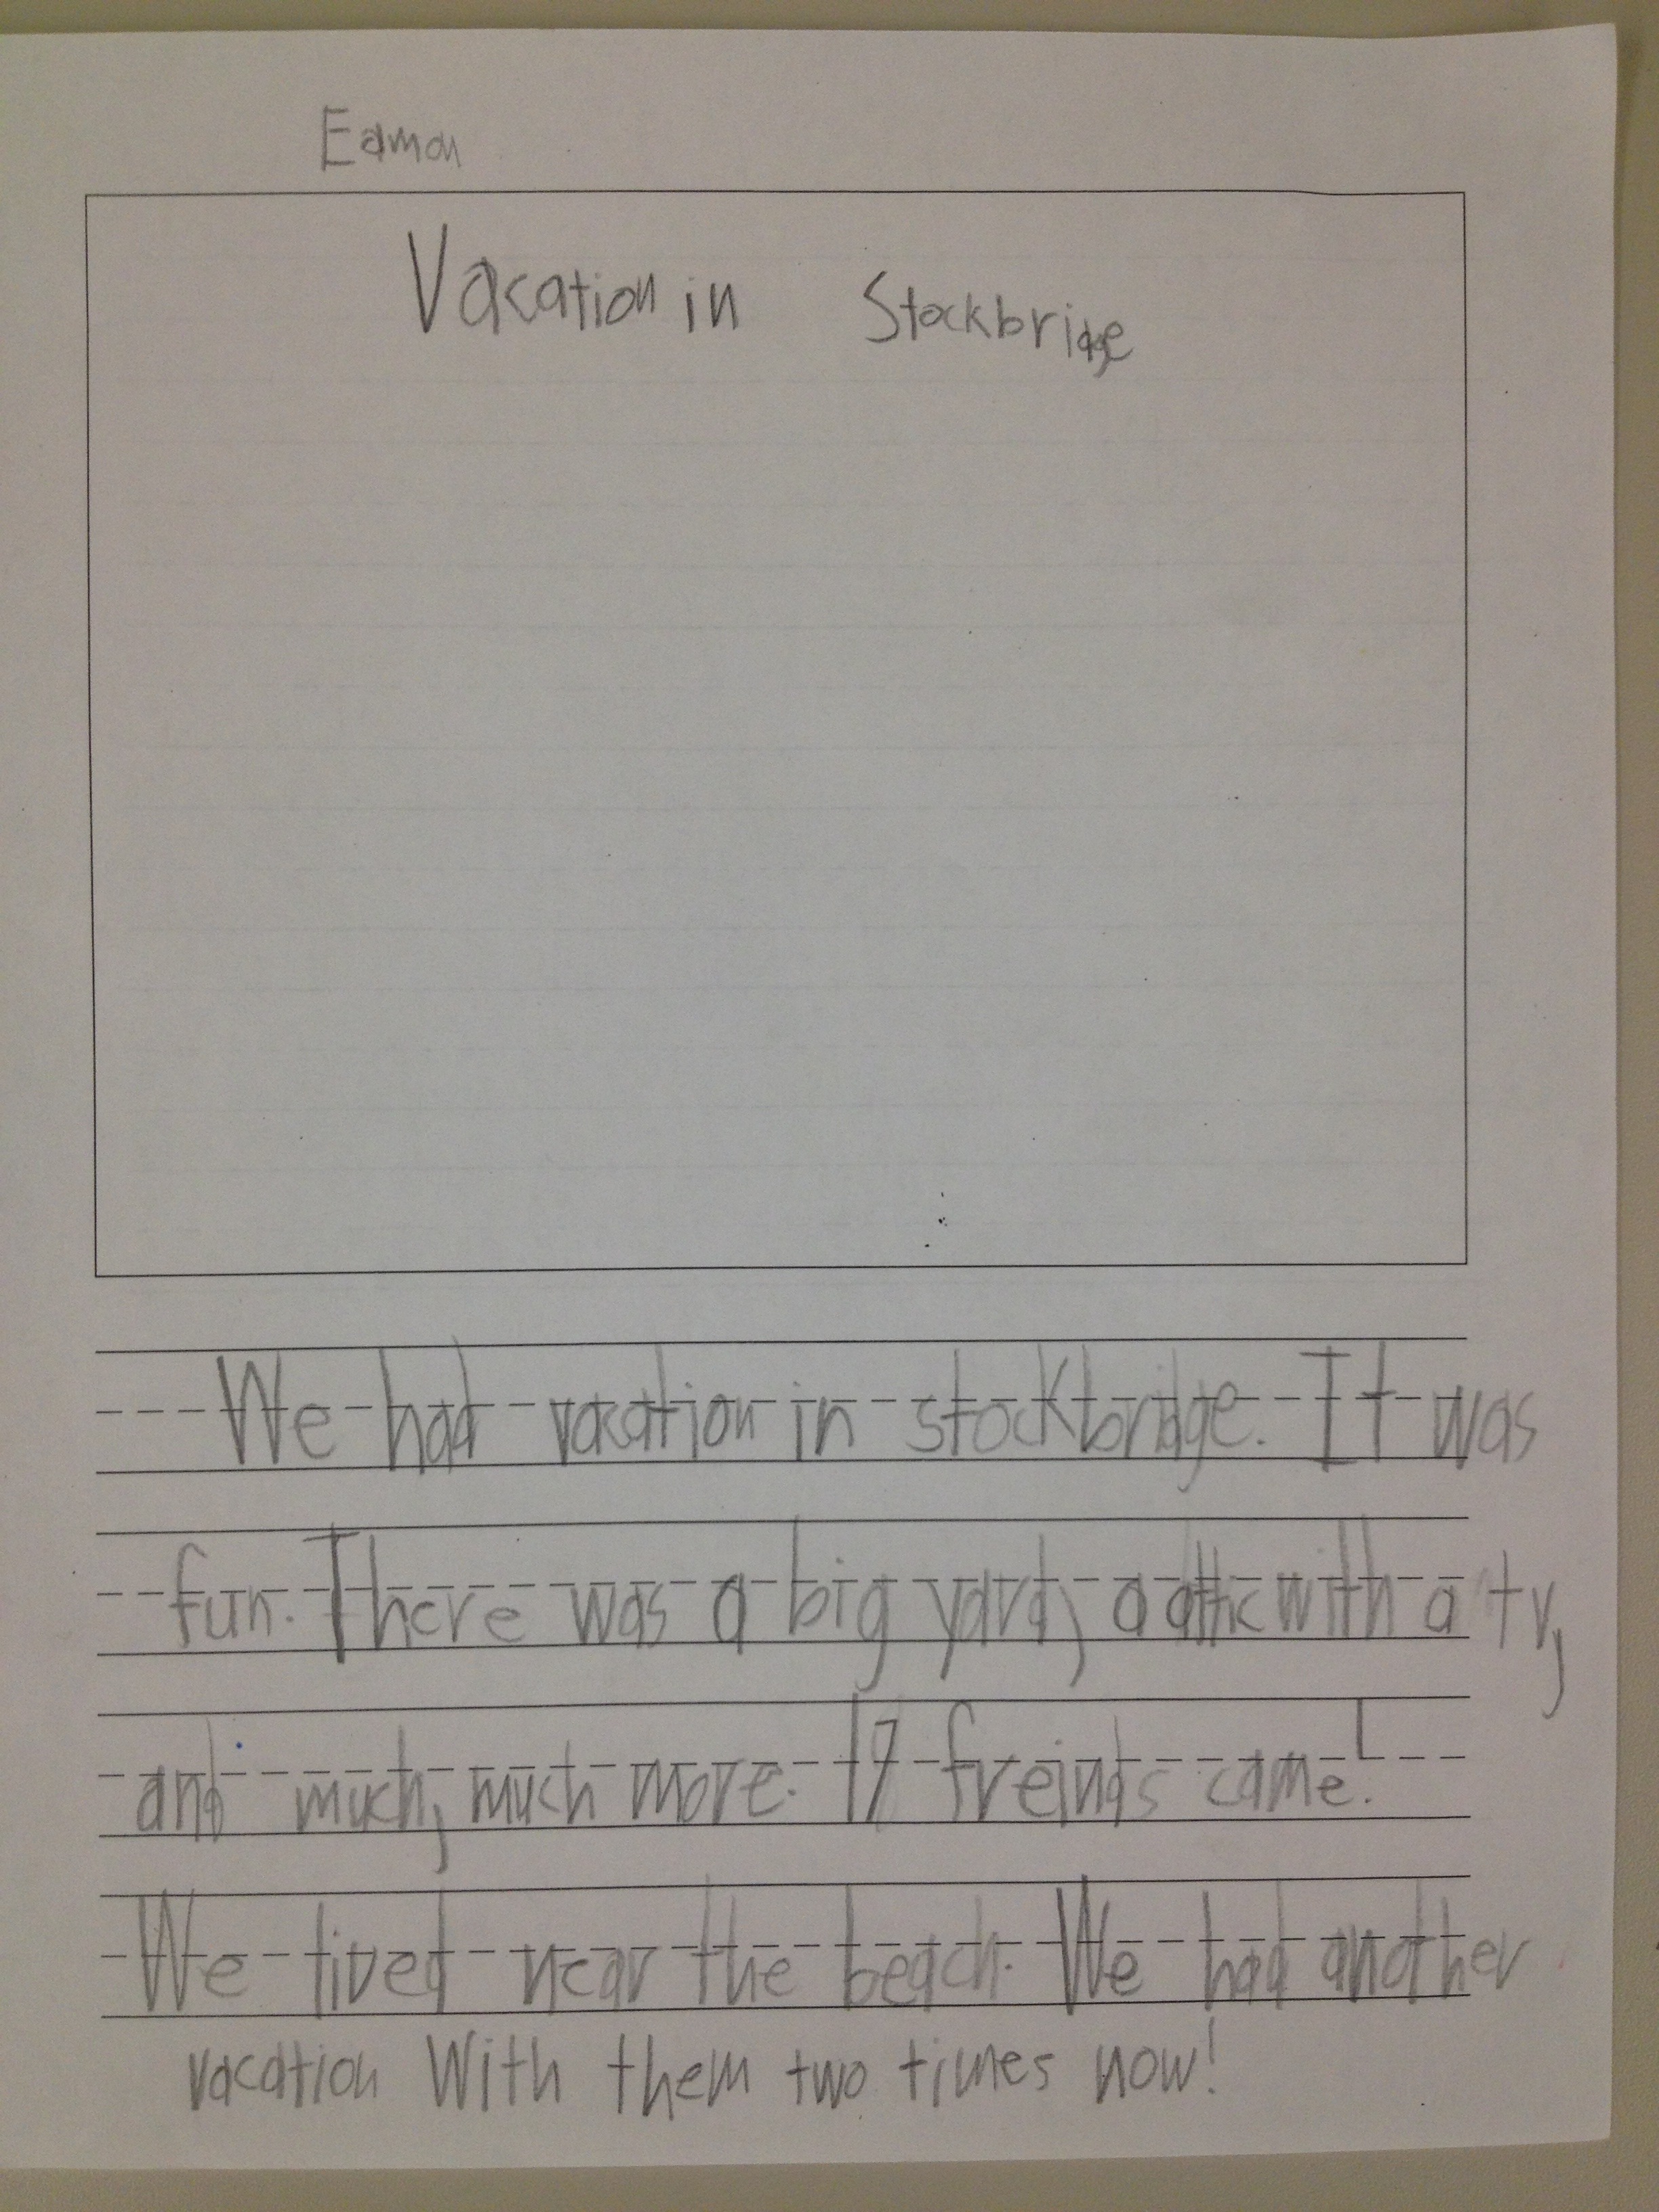 Eamon
Vacation in Stockbridge
We had vacation in stockbridge. It was
fun. There was a big yard, a attic with a tv,
and much, much more. 17 freinds came!
We lived near the beach. We had another
vacation With them two times now!